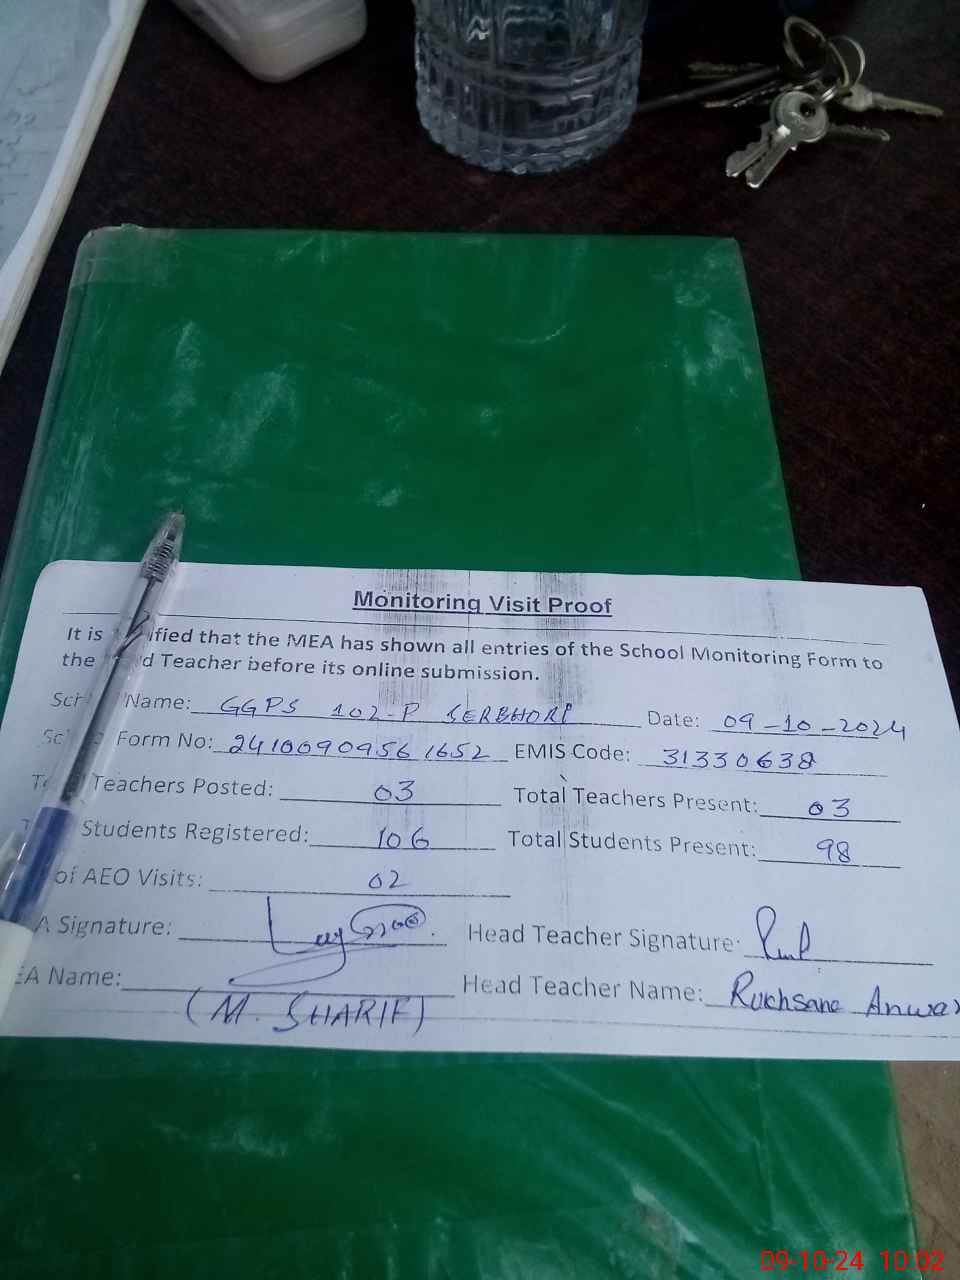 Monitoring Visit Proof
It is ified that the MEA has shown all entries of the School Monitoring Form to
the d Teacher before its online submission.
Sch Name: GGPS 102-P SERBHORI Date: 09-10-2024
Sc Form No: 24100909561652 EMIS Code: 31330638
To Teachers Posted: 03 Total Teachers Present: 03
Students Registered: 106 Total Students Present: 98
of AEO Visits: 02
A Signature: Head Teacher Signature:
EA Name: (M. SHARIF) Head Teacher Name: Rukhsana Anwar
09-10-24 10:02